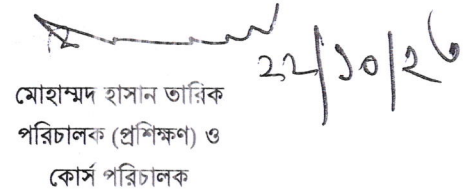 ২২/১০/২৩
মোহাম্মদ হাসান তারিক
পরিচালক (প্রশিক্ষণ) ও
কোর্স পরিচালক